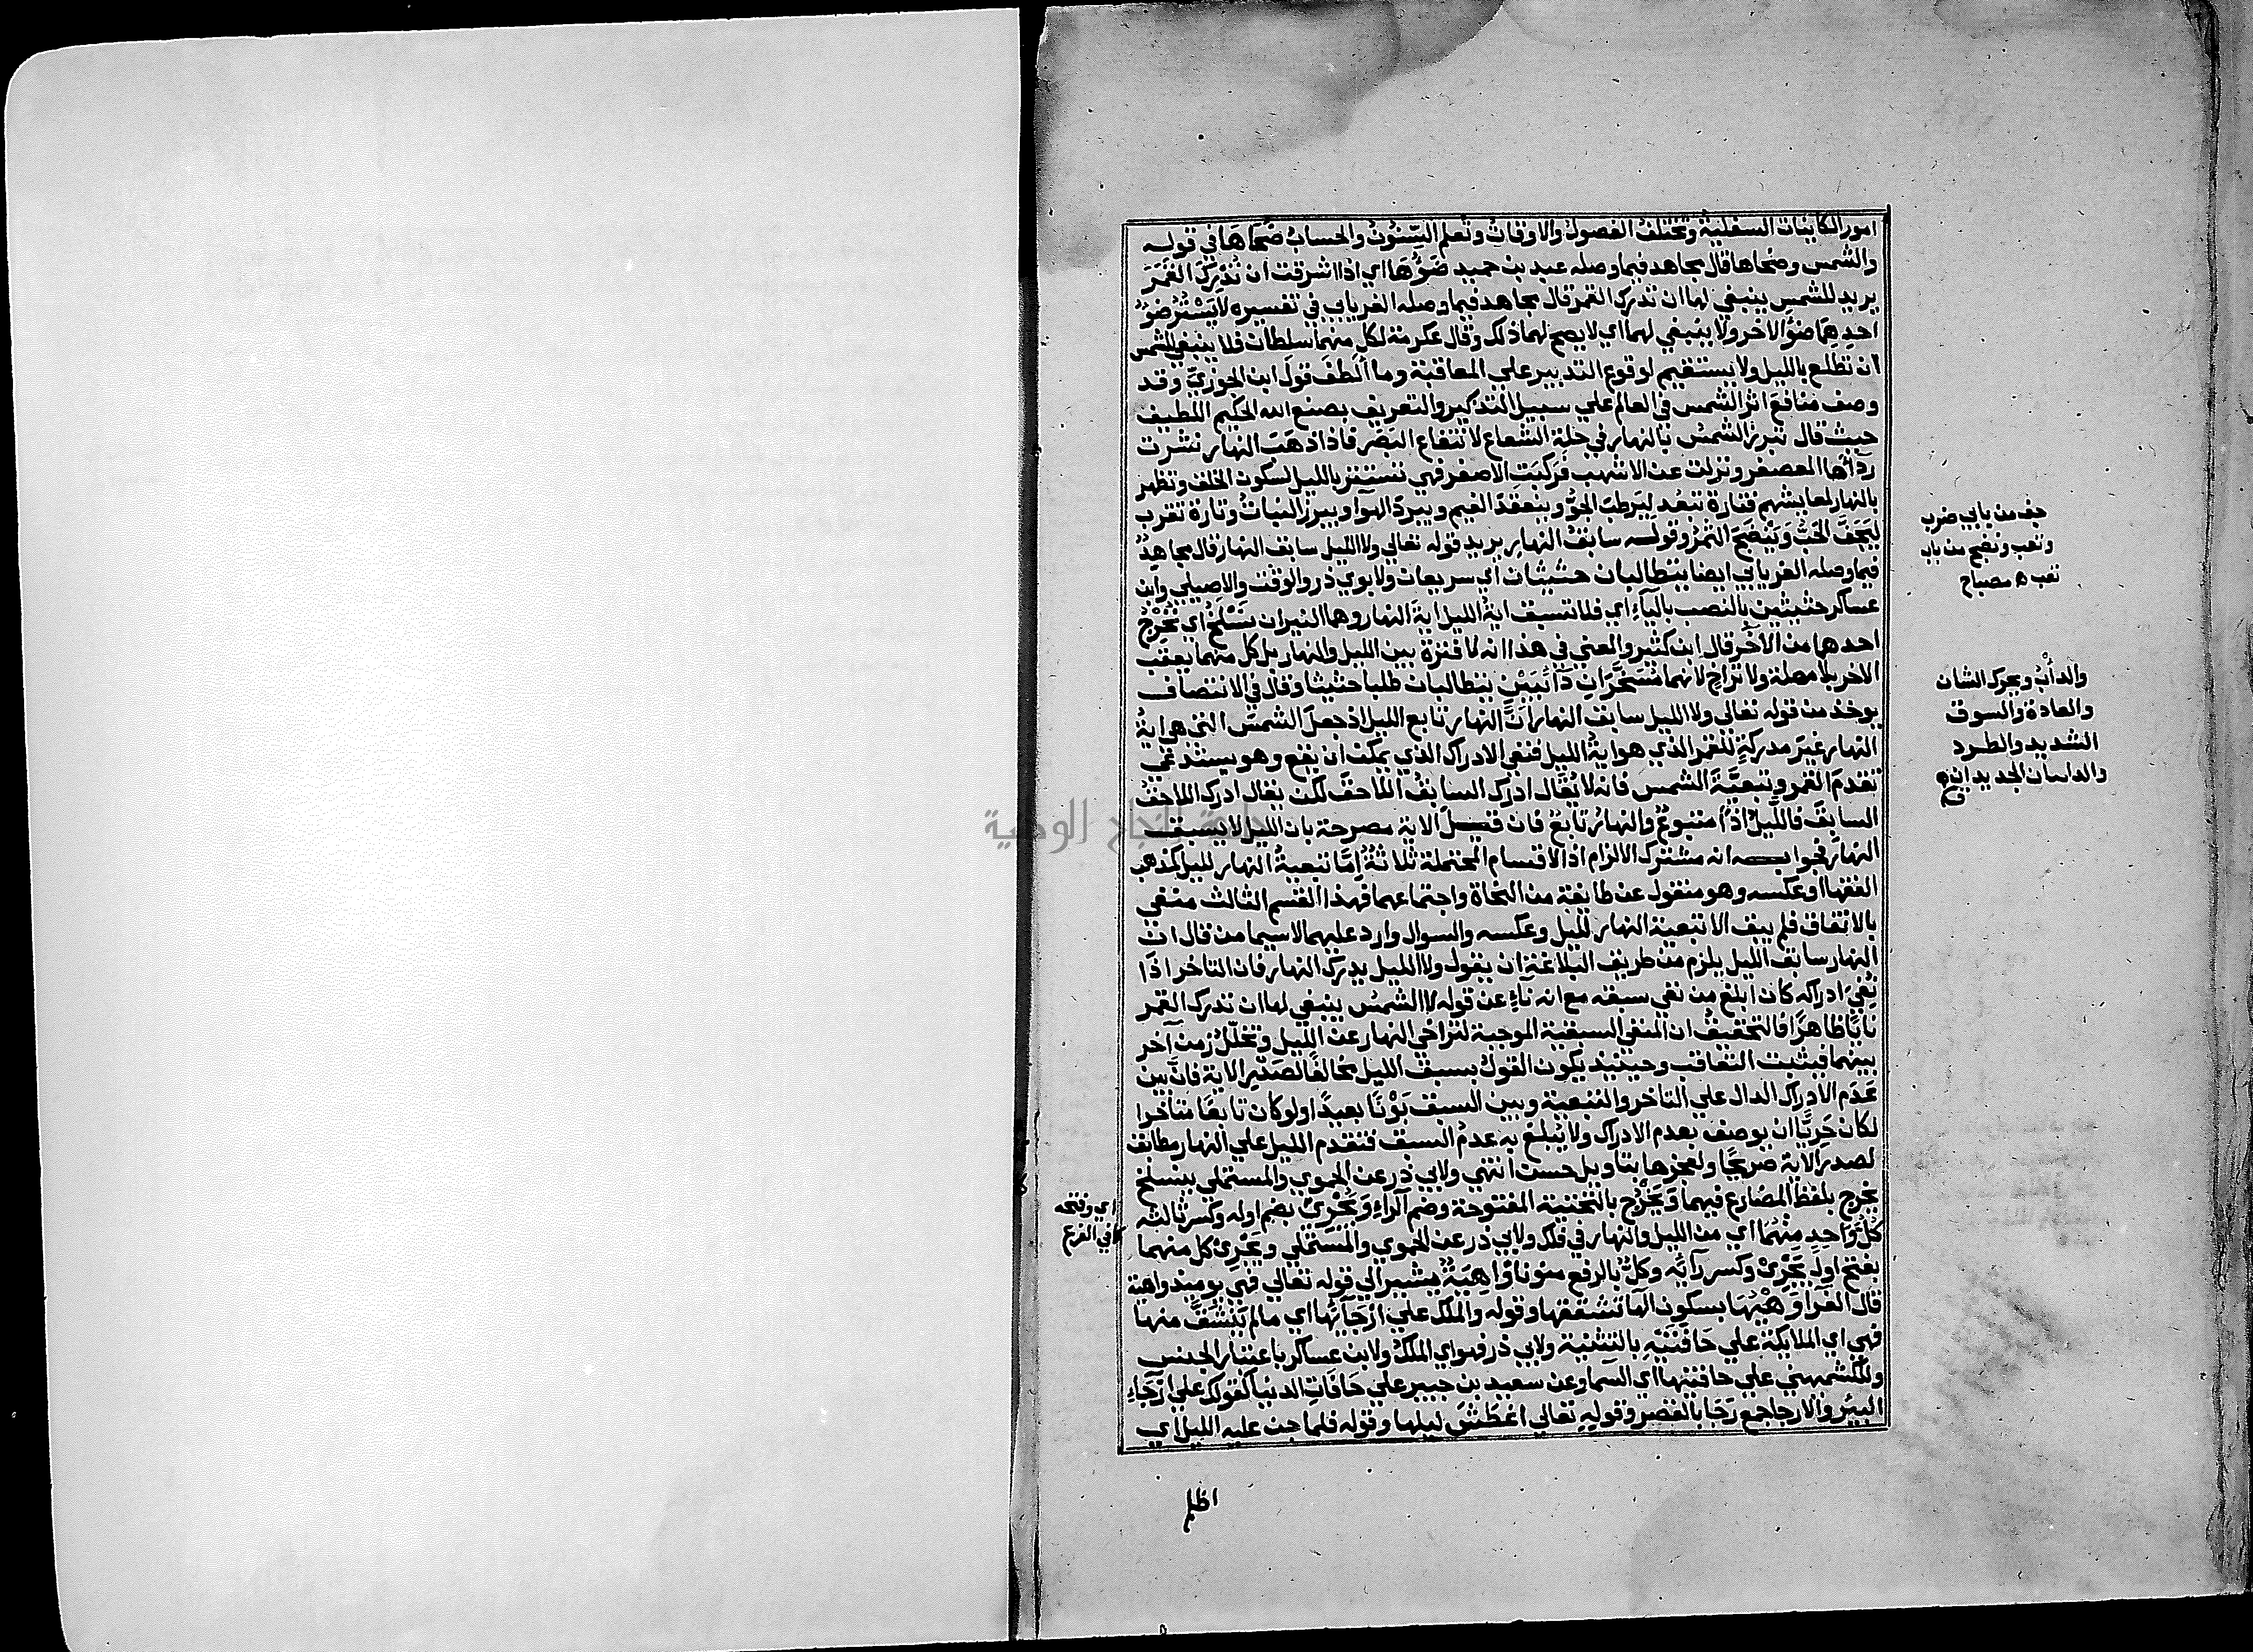 امور الكاينات السفلية وتختلف الفصول والاوقات وتعلم السنون والحساب ضحاها في قوله
والشمس وضحاها قال مجاهد فيما وصله عبد بن حميد ضوءها اي اذا اشرقت ان تدرك القمر
يريد للشمس ينبغي لها ان تدرك القمر قال مجاهد فيما وصله الفريابي في تفسيره لا يستر ضوء
احدهما ضوء الاخر ولا ينبغي لهما اي لا يصح لهما ذلك وقال عكرمة لكل منهما سلطان فلا ينبغي للشمس
ان تطلع بالليل ولا يستقيم لوقوع التدبير علي المعاقبة وما ألطف قول ابن الجوزي وقد
وصف منافع اثر الشمس في العالم علي سبيل التذكير والتعريف بصنع الله الحكيم اللطيف
حيث قال تبرز الشمس بالنهار في حلة الشعاع لانتفاع البصر فاذا ذهب النهار نشرت
ردآها المعصفر ونزلت عن الاشهب فركبت الاصفر فهي تستتر بالليل لسكون الخلق وتظهر
بالنهار لمعايشهم فتارة تبعد ليرطب الجو وينعقد الغيم ويبرد الهوا ويبرز النبات وتارة تقرب
ليجف الحب وينضج الثمر وقوله سابق النهار يريد قوله تعالي ولا الليل سابق النهار قال مجاهد
فيما وصله الفريابي ايضا يتطالبان حثيثان اي سريعان ولابوي ذر والوقت والاصيلي وابن
عساكر حثيثين بالنصب بالياء اي فلا تسبق اية الليل اية النهار وهما النيران نسلخ اي نخرج
احدهما من الاخر قال ابن كثير والمعني في هذا انه لا فترة بين الليل والنهار بل كل منهما يعقب
الاخر بلا مهلة ولا تراخ لانهما مسخران دائبين يتطالبان طلبا حثيثا وقال في الانتصاف
يوخذ من قوله تعالي ولا الليل سابق النهار ان النهار تابع الليل اذ جعل الشمس التي هي اية
النهار غير مدركة للقمر الذي هو اية الليل فنفي الادراك الذي يمكن ان يقع وهو يستدعي
تقدم القمر وتبعية الشمس فانه لا يقال ادرك السابق اللاحق لكن يقال ادرك اللاحق
السابق فالليل اذا متبوع والنهار تابع فان قيل الاية مصرحة بان الليل لا يسبق
النهار فجوابه انه مشترك الالزام اذ الاقسام المحتملة ثلاثة إما تبعية النهار لليل كمذهب
الفقها او عكسه وهو منقول عن طايفة من النحاة واجتماعهما فهذا القسم الثالث منفي
بالاتفاق فلم يبق الا تبعية النهار لليل وعكسه والسوال وارد عليهما لا سيما من قال ان
النهار سابق الليل يلزم من طريق البلاغة ان يقول ولا الليل يدرك النهار فان التاخر اذا
نفي ادراكه كان ابلغ من نفي سبقه مع انه ناء عن قوله لا الشمس ينبغي لها ان تدرك القمر
نايا ظاهرا فالتحقيق ان المنفي السبقية الموجبة لتراخي النهار عن الليل وتخلل زمن آخر
بينهما فيثبت التعاقب وحينيذ يكون القول بسبق الليل مخالفا لصدر الاية فان بين
عدم الادراك الدال علي التاخر والتبعية وبين السبق بونا بعيدا ولو كان تابعا متاخرا
لكان حريا ان يوصف بعدم الادراك ولا يبلغ به عدم السبق فتقدم الليل علي النهار مطابق
لصدر الاية صريحا ولعجزها بتاويل حسن انتهي ولابي ذر عن الحموي والمستملي ينسلخ
يخرج بلفظ المضارع فيهما ويخرج بالتحتية المفتوحة وضم الراء ويجري بضم اوله وكسر ثالثه
كل واحد منهما اي من الليل والنهار في فلك ولابي ذر عن الحموي والمستملي ويجري كل منهما
بفتح اول يجري وكسر رآيه وكل بالرفع منونا واهية يشير الي قوله تعالي فهي يوميذ واهية
قال الفرا وهيها بسكون الها تشققها وقوله والملك علي ارجآئها اي ما لم ينشق منها
فهي اي الملايكة علي حافتيه بالتثنية ولابي ذر فهو اي الملك ولابن عساكر باعتبار الجنس
وللكشميهني علي حافتيها اي السما وعن سعيد بن جبير علي حافات الدنيا كقولك علي ارجاء
البئر والارجا جمع رجا بالقصر وقوله تعالي اغطش ليلها وقوله فلما جن عليه الليل اي
اظلم
جف من بابي ضرب
وتعب ونضج من باب
تعب ه مصباح
والدأب ويحرك الشان
والعادة والسوق
الشديد والطرد
والدايبان الجديدان ه
ق
اي وفتحه
كما في الفرع
جامعة النجاح الوطنية